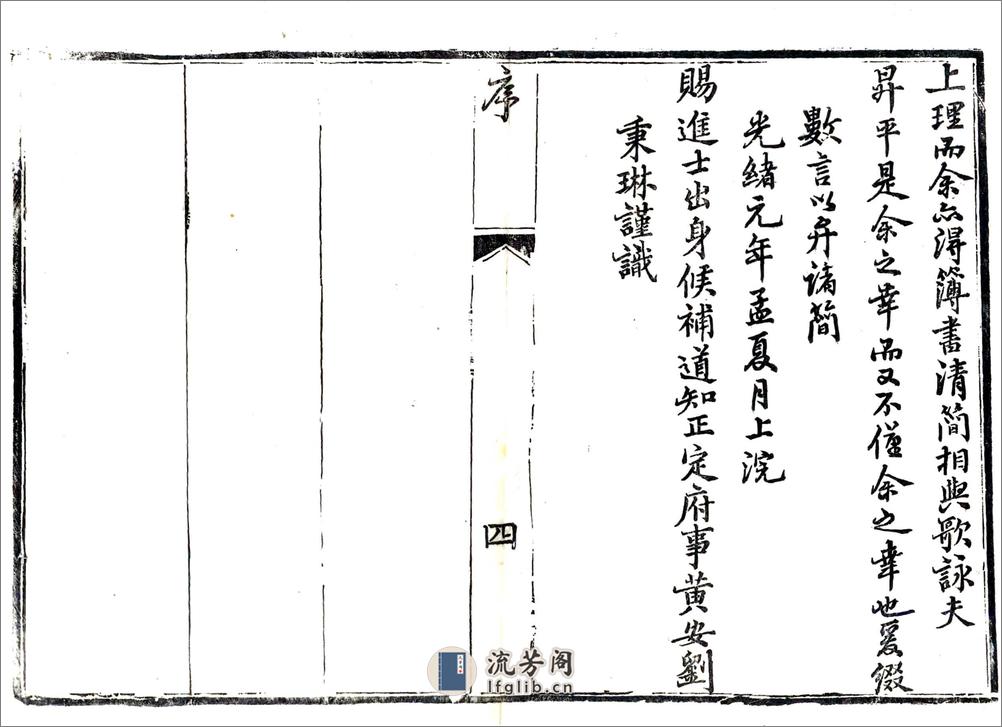 上理而余亦得簿書清簡相與歌詠夫
昇平是余之幸而又不僅余之幸也爰綴
數言以弁諸簡
光緒元年孟夏月上浣
賜進士出身候補道知正定府事黃安劉
秉琳謹識
序
四
流芳阁
lfglib.cn